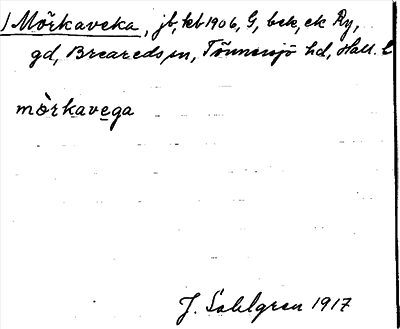 1 Mörkaveka, jb, kb 1906, G, bek, ek Ry,
gd, Breareds sn, Tönnersjö hd, Hall. l
mòrkavega
J. Sahlgren 1917